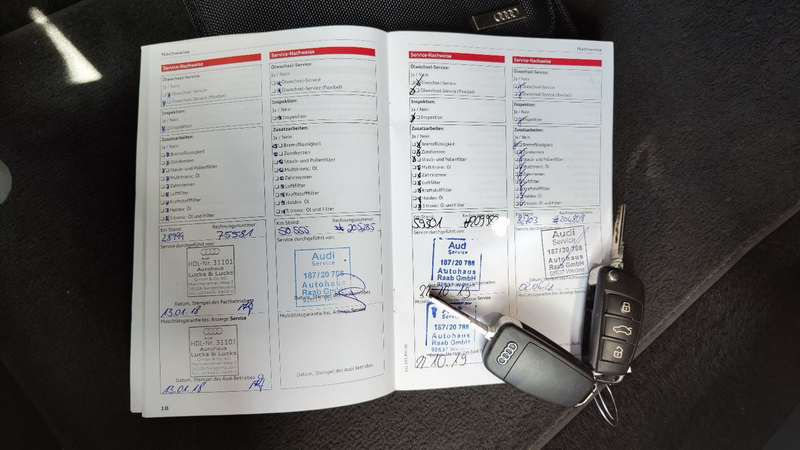 Nachweise
Service-Nachweise
Ölwechsel-Service:
Ja / Nein
Ölwechsel-Service
Ölwechsel-Service (flexibel)
Inspektion:
Ja / Nein
Inspektion
Zusatzarbeiten:
Ja / Nein
Bremsflüssigkeit
Zündkerzen
Staub- und Pollenfilter
Multitronic: Öl
Zahnriemen
Luftfilter
Kraftstofffilter
Haldex: Öl
S tronic: Öl und Filter
Km Stand: Rechnungsnummer
75581
Service durchgeführt von:
HDL-Nr. 31101
Autohaus
Lucks & Lucks
Datum, Stempel des Fachbetriebes
13.01.18
Mobilitätsgarantie bis: Anzeige Service
HDL-Nr. 31101
Autohaus
Lucks & Lucks
Datum, Stempel des Audi Betriebes
13.01.18
16
Service-Nachweise
Ölwechsel-Service:
Ja / Nein
Ölwechsel-Service
Ölwechsel-Service (flexibel)
Inspektion:
Ja / Nein
Inspektion
Zusatzarbeiten:
Ja / Nein
Bremsflüssigkeit
Zündkerzen
Staub- und Pollenfilter
Multitronic: Öl
Zahnriemen
Luftfilter
Kraftstofffilter
Haldex: Öl
S tronic: Öl und Filter
Km Stand: Rechnungsnummer
50555
Service durchgeführt von:
Audi
Service
187/20 788
Autohaus
Raab GmbH
Mobilitätsgarantie bis: Anzeige Service
Datum, Stempel des Audi Betriebes
Nachweise
Service-Nachweise
Ölwechsel-Service:
Ja / Nein
Ölwechsel-Service
Ölwechsel-Service (flexibel)
Inspektion:
Ja / Nein
Inspektion
Zusatzarbeiten:
Ja / Nein
Bremsflüssigkeit
Zündkerzen
Staub- und Pollenfilter
Multitronic: Öl
Zahnriemen
Luftfilter
Kraftstofffilter
Haldex: Öl
S tronic: Öl und Filter
Km Stand: Rechnungsnummer
59301
Audi
Service
187/20 788
Autohaus
Raab GmbH
187/20 788
Autohaus
Raab GmbH
92637
10.19
Service-Nachweise
Ölwechsel-Service:
Ja / Nein
Ölwechsel-Service
Ölwechsel-Service (flexibel)
Inspektion:
Ja / Nein
Inspektion
Zusatzarbeiten:
Ja / Nein
Bremsflüssigkeit
Zündkerzen
Staub- und Pollenfilter
Multitronic: Öl
Zahnriemen
Luftfilter
Kraftstofffilter
Haldex: Öl
S tronic: Öl und Filter
Rechnungsnummer
Audi
Service
187/20 788
Autohaus
Raab GmbH